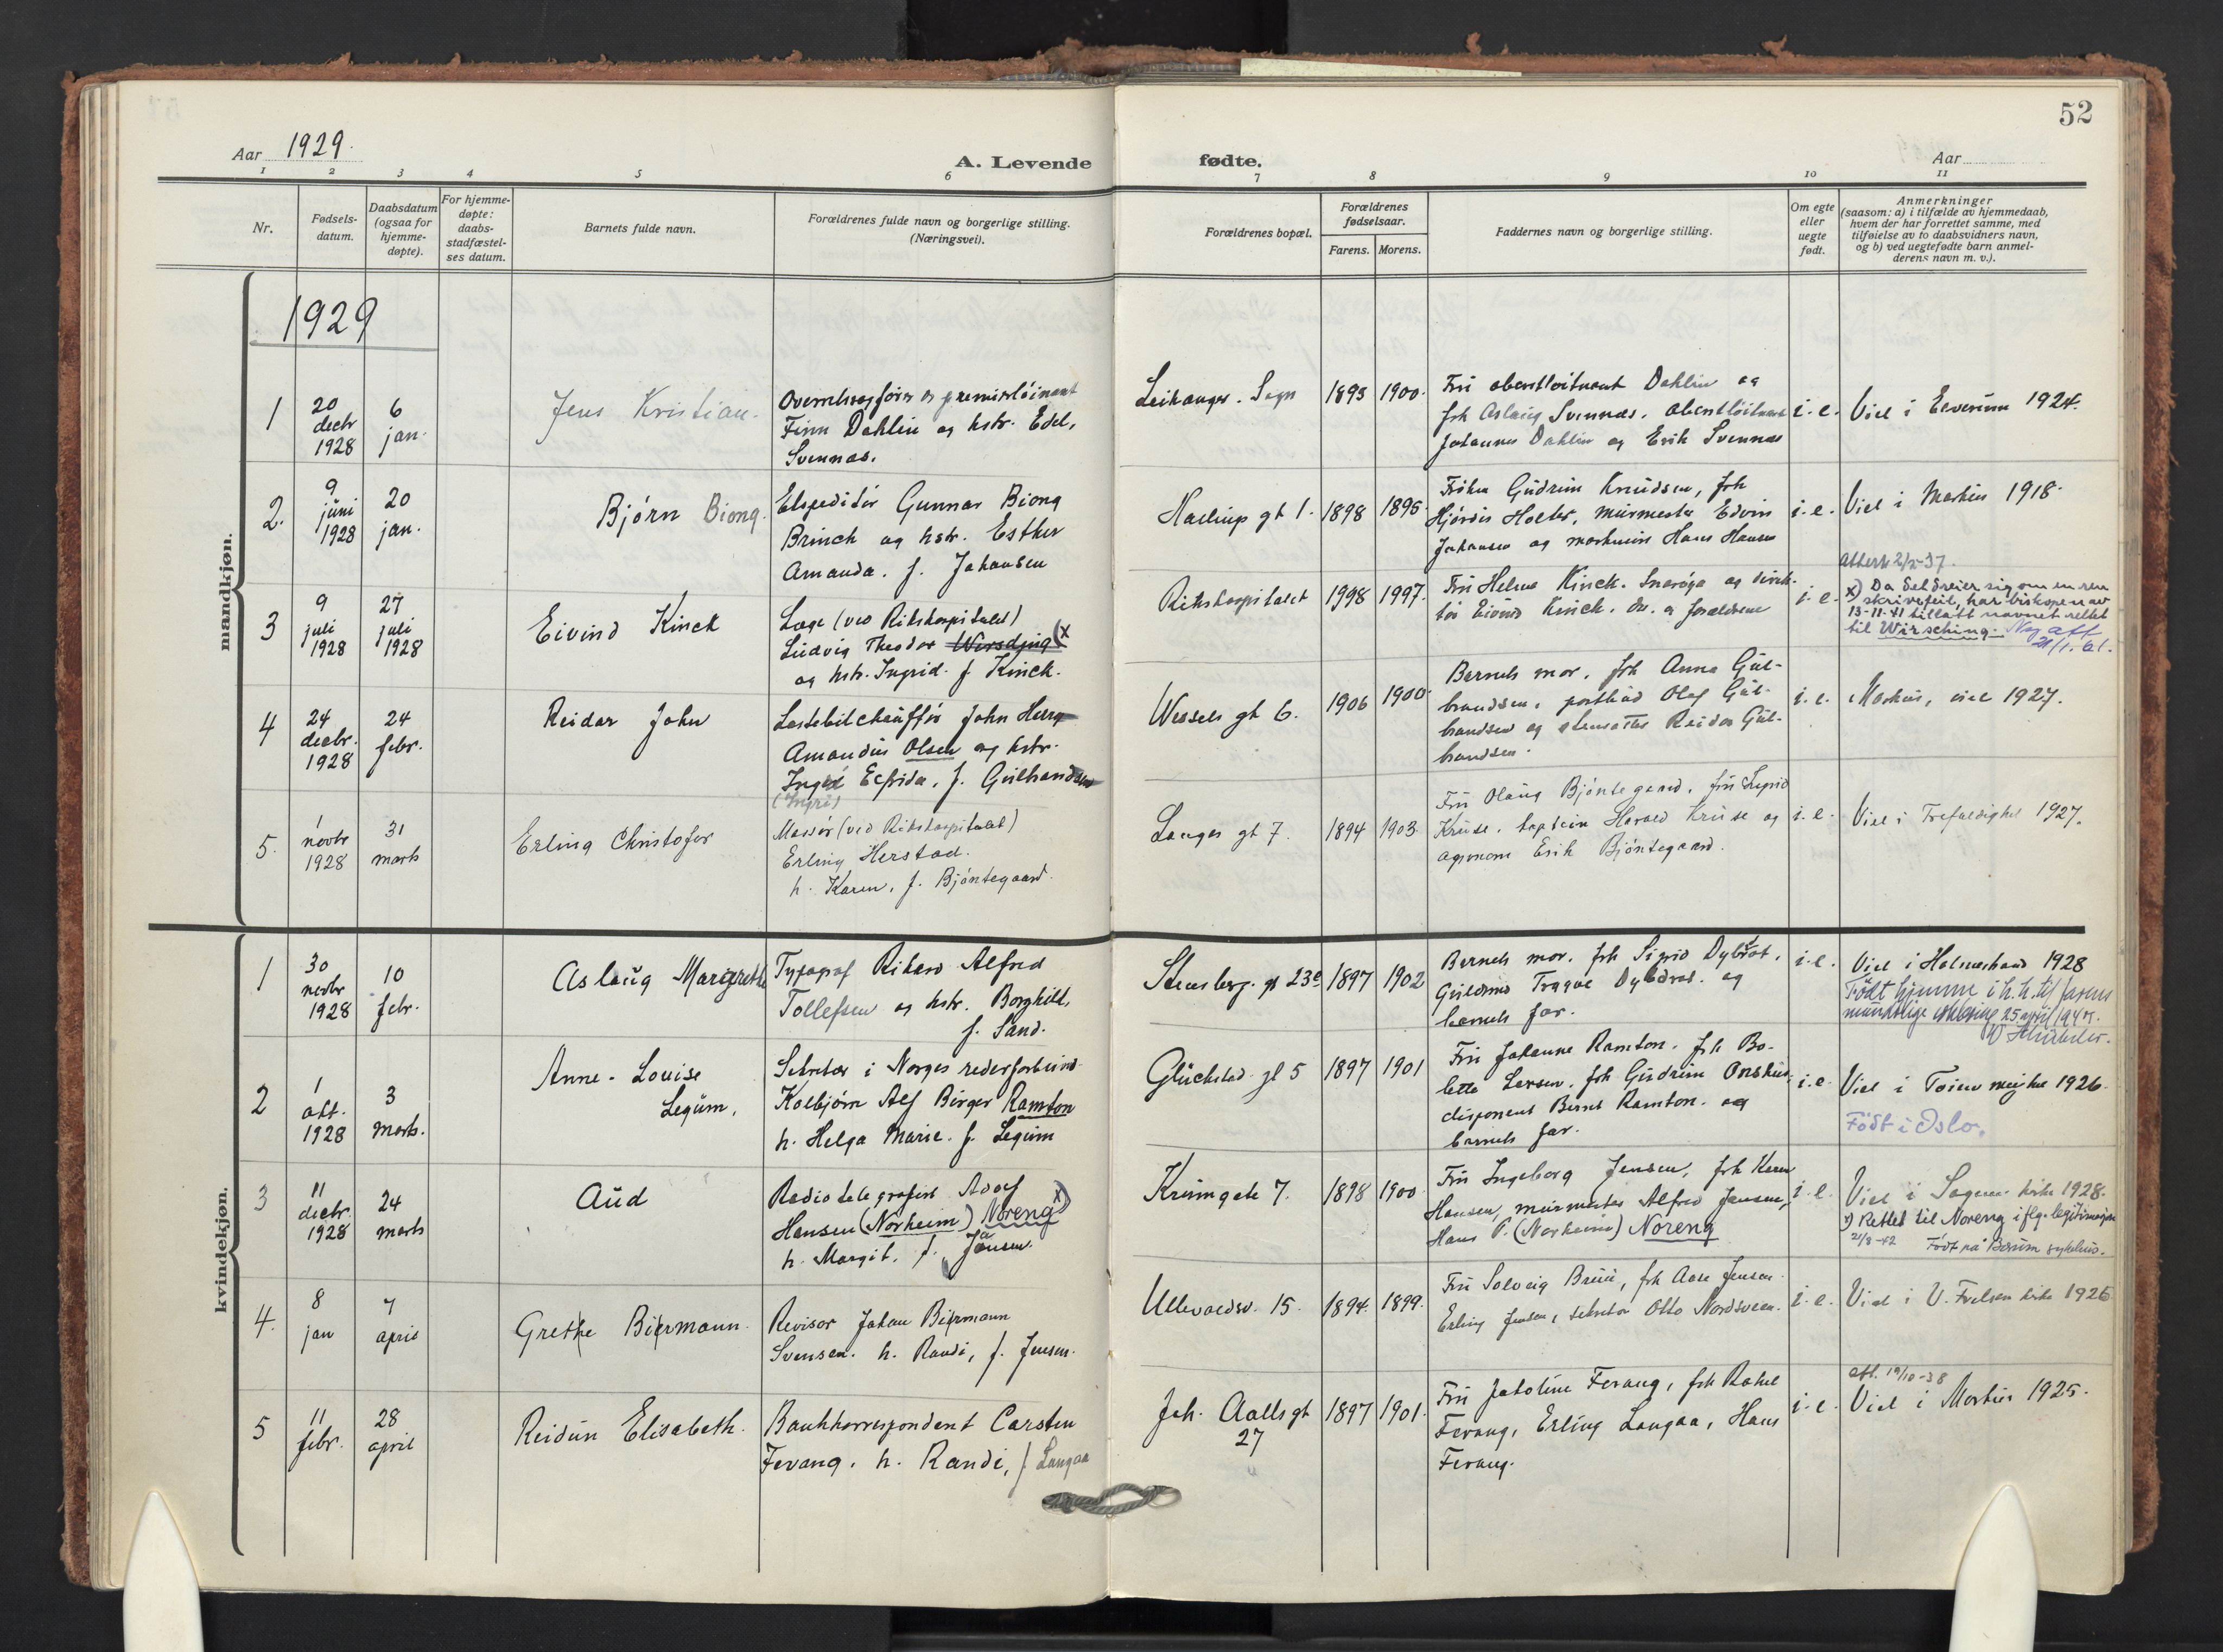 52
Aar 1929.
A. Levende
fødte.
Aar
1 2 3 4 5 6 7 8 9 10 11
Nr.
Fødsels-
datum.
Daabsdatum
(ogsaa for
hjemme-
døpte).
For hjemme-
døpte:
daabs-
stadfæstel-
ses datum.
Barnets fulde navn.
Forældrenes fulde navn og borgerlige stilling.
(Næringsvei).
Forældrenes bopæl.
Forældrenes
fødselsaar.
Farens. Morens.
Faddernes navn og borgerlige stilling.
Om egte
eller
uegte
født.
Anmerkninger
(saasom: a) i tilfælde av hjemmedaab,
hvem der har forrettet samme, med
tilføielse av to daabsvidners navn,
og b) ved uegtefødte barn anmel-
derens navn m. v.).
1929
mandkjøn.
1
20
decbr
1928
6
jan.
Jens Kristian.
og premierløinant
Finn Dahlin og hstr. Edel,
Svennas.
Leikanger. Sogn
1893 1900.
Fru oberstløitnant Dahlin og
frk Aslaug Svennas. oberstløitnant
Johannes Dahlin og Erik Svennas
i. e.
Viet i Elverum 1924.
2.
9
juni
1928
20
jan.
Bjørn Biong.
Ekspeditør Gunnar Biong
Brinch og hstr. Esther
Amanda. f. Johansen
gt 1.
1898 1895
Frøken Gudrun Knudsen, frk
Hjørdis Holter, murmester Edvin
Johansen og Hans Hansen
i. e.
Viet i Markus 1918.
3
9
juli
1928
27
juli
1928
Eivind Kinck
Læge (ved Rikshospitalet)
Ludvig Theodor (x
og hstr. Ingrid f. Kinck.
Rikshospitalet
1998 1997.
Fru Helma Kinck. Snarøya og direk-
tør Eivind Kinck. do. og forældrene
i. e.
x) Da det dreier sig om en ren
skrivefeil, har biskopen av
13-11-41 tillatt navnet rettet
til Wirsching.
4
24
decbr.
1928
24
febr.
Reidar John
Lastebilchauffør John Henry
Amandus Olsen og hstr.
f. Gulbrandsen
(Ingrid)
Wessels gt 6.
1906 1900.
Barnets mor, frk Anna Gul-
brandsen, postbud Olaf Gul-
brandsen og Reidar Gul-
brandsen.
i. e.
Markus, viet 1927.
5.
1
novbr
1928
31
marts
Erling Christofer
Massør (ved Rikshospitalet)
Erling Herstad.
h. Karen, f. Bjøntegaard.
Langes gt 7.
1894 1903.
Fru Olaug Bjøntegaard, fru Ingrid
Kruse, kaptein Harald Kruse og
agronom Erik Bjøntegaard.
i. e.
Viet i Trefoldighet 1927.
kvindekjøn.
1
30
novbr
1928
10
febr.
Aslaug Margrethe
Typograf Rikard Alfred
Tollefsen og hstr. Borghild,
f. Sand.
Stensberg. gt 23c
1897 1902
Barnets mor, frk Sigrid Dybdrot,
Trygve Dybdrot. og
barnets far.
i. e.
Viet i Holmestrand 1928
Født hjemme i h. h. til farens
mundtlige erklæring 25 april 1947.
2
1
okt.
1928
3
marts.
Anne-Louise
Legum.
Sekretær i Norges rederforbund
Kolbjørn Alf Birger Ramton
h. Helga Marie. f. Legum
Glückstad gt 5
1897 1901
Fru Johanne Ramton. frk Bo-
lette Larsen. frk Gudrun
disponent Bernt Ramton. og
barnets far.
i. e.
Viet i Tøien menighet 1926.
Født i Oslo.
3
11
decbr.
1928
24
marts
Aud
Radiotelegrafist Adolf
Hansen (Norheim) Noreng x)
h. Margit. f. Jansen.
Krumgate 7.
1898 1900
Fru Ingeborg Jensen, frk Karen
Hansen, murmester Alfred Jansen,
Hans P. (Norheim) Noreng
i. e.
Viet i Sagene kirke 1928.
x) Rettet til Noreng iflg. legitimasjon
21/8-42 Født på Bærum sykehus.
4.
8
jan
7
april
Grethe Biermann.
Revisor Johan Biermann
Svensen. h. Randi, f. Jensen.
Ullevaalsv. 15.
1894. 1899.
Fru Solveig Bruu, frk Aase Jensen
Erling Jensen, sekretær Otto Nordsveen.
i. e.
Viet i V. Frelsers kirke 1926
5
11
febr.
28
april
Reidun Elisabeth.
Bankkorrespondent Carsten
Fevang. h. Randi, f. Langaa
Joh. Aalls gt
27
1897 1901.
Fru Jakoline Fevang, frk Rakel
Fevang, Erling Langaa, Hans
Fevang.
i. e.
att. 19/10-38
Viet i Markus 1925.